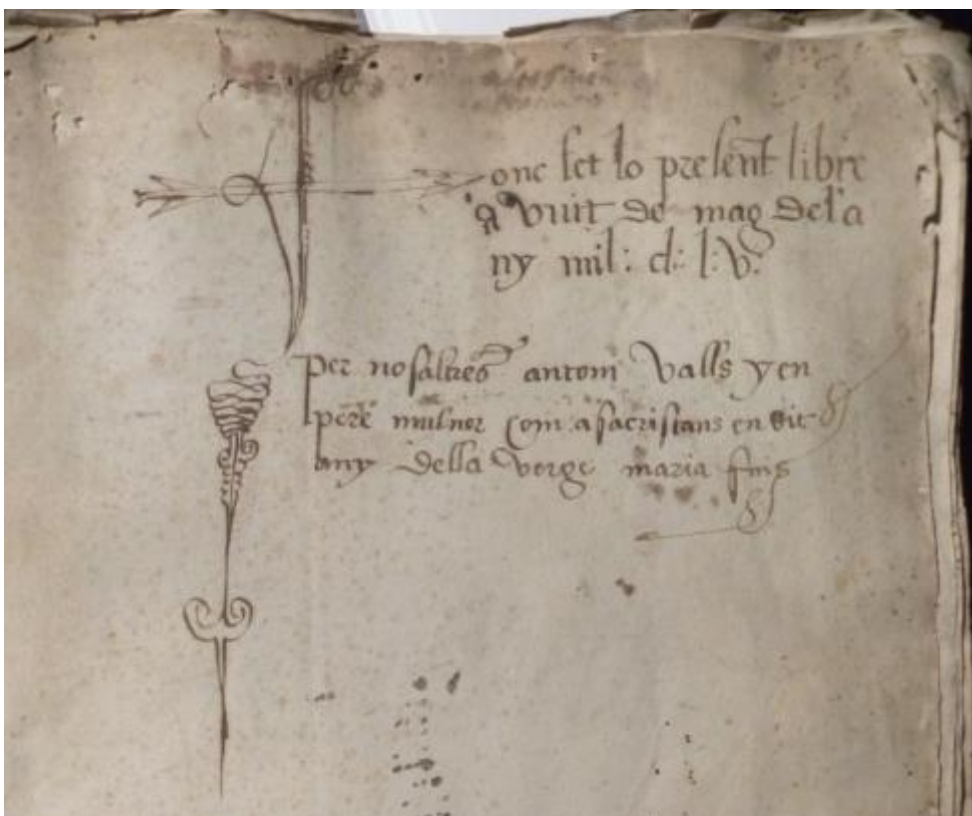 fonc fet lo present libre
a vuit de mag dela
ny mil: d: l: v:
per nosaltres antoni valls y en
pere mulner com a sacristans en dit
any della verge maria fins